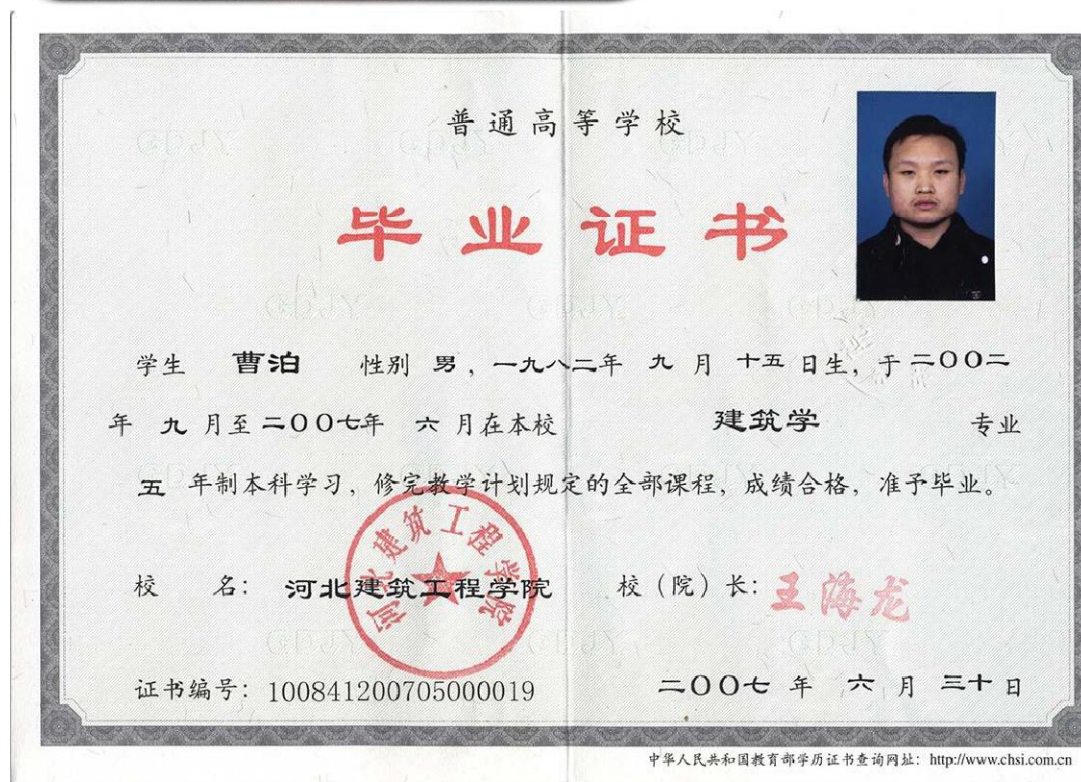 普通高等学校
毕业证书
学生 曹泊 性别 男，一九八二年 九 月 十五 日生，于二〇〇二
年 九 月至二〇〇七年 六 月在本校 建筑学 专业
五 年制本科学习，修完教学计划规定的全部课程，成绩合格，准予毕业。
河北建筑工程学院
校 名：河北建筑工程学院 校（院）长：王海龙
证书编号：100841200705000019 二〇〇七 年 六 月 三十 日
中华人民共和国教育部学历证书查询网址：http://www.chsi.com.cn